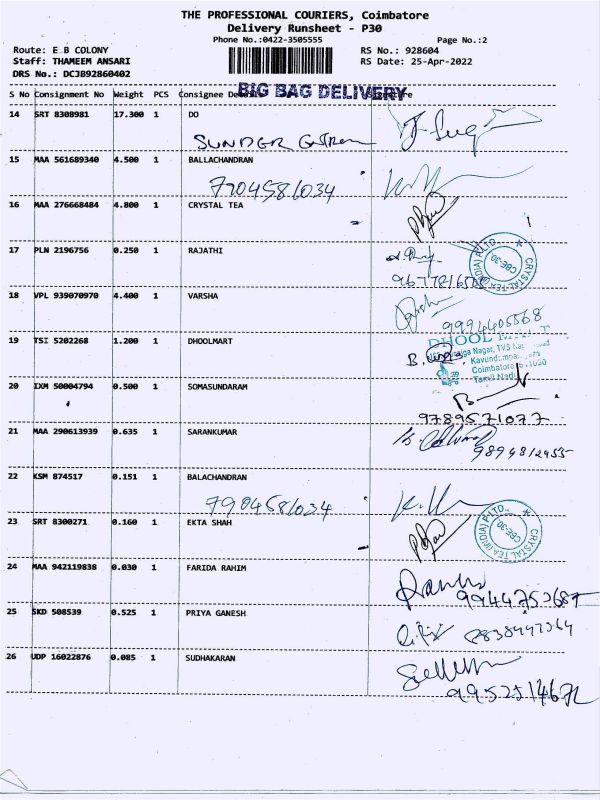 THE PROFESSIONAL COURIERS, Coimbatore
Delivery Runsheet - P30
Phone No.:0422-3505555
Page No.:2
Route: E B COLONY
RS No.: 928604
Staff: THAMEEM ANSARI
RS Date: 25-Apr-2022
DRS No.: DCJB92860402
BIG BAG DELIVERY
S No Consignment No Weight PCS Consignee Details Signature
14 SRT 8308981 17.300 1 DO
SUNDER
15 MAA 561689340 4.500 1 BALLACHANDRAN
7904581034
16 MAA 276668484 4.800 1 CRYSTAL TEA
17 PLN 2196756 0.250 1 RAJATHI
CRYSTAL-TEA (INDIA) P.LTD.
CBE-30
18 VPL 939070970 4.400 1 VARSHA
9994405568
19 TSI 5202268 1.200 1 DHOOLMART
Nagar, TVS
Coimbatore
Tamil Nadu
20 IXM 50004794 0.500 1 SOMASUNDARAM
9789571077
21 MAA 290613939 0.635 1 SARANKUMAR
9894812455
22 KSM 874517 0.151 1 BALACHANDRAN
7904581034
23 SRT 8300271 0.160 1 EKTA SHAH
CRYSTAL TEA (INDIA) P.LTD.
CBE-30
24 MAA 942119838 0.030 1 FARIDA RAHIM
25 SKD 508539 0.525 1 PRIYA GANESH
26 UDP 16022876 0.085 1 SUDHAKARAN